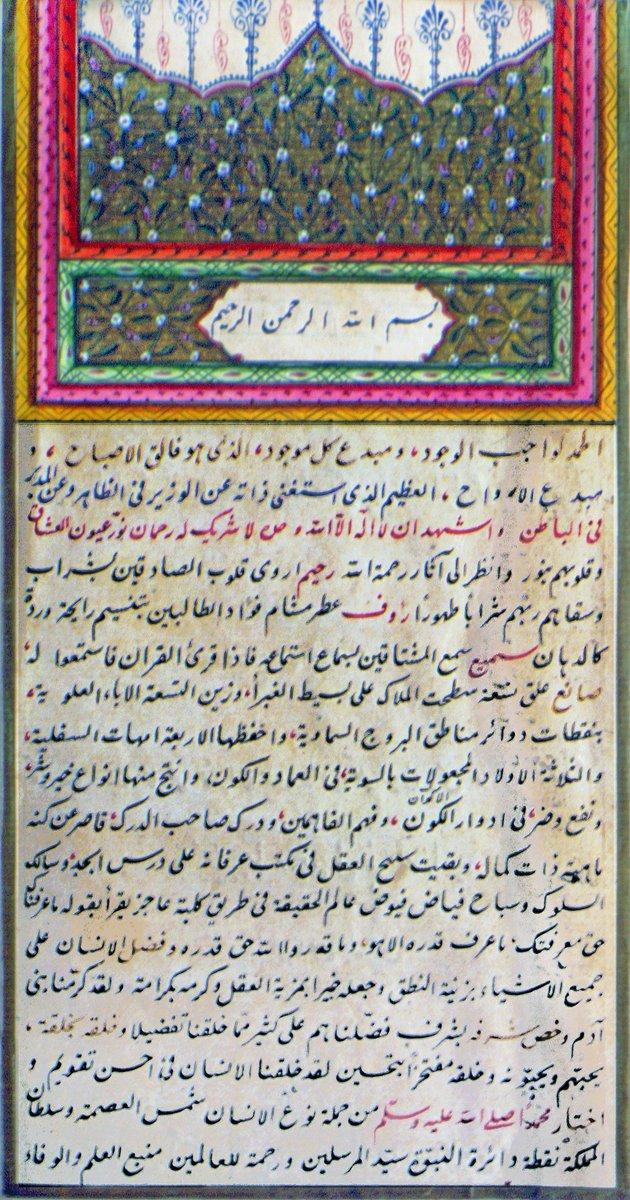 بسم الله الرحمن الرحيم
الحمد لواجب الوجود، ومبدع كل موجود، الذى هو فالق الاصباح، و
مبدع الارواح، العظيم الذى استغنى ذاته عن الوزير فى الظاهر وعن المدبر
فى الباطن واشهد ان لا اله الا الله وحده لا شريك له رحمان نور عيون العشاق
وقلوبهم بنور وانظر الى آثار رحمة الله رحيم اروى قلوب الصادقين بشراب
وسقاهم ربهم شرابا طهورا رؤف عطر مشام فؤاد الطالبين بتنسيم رايحة وردة
كالدهان سميع سمع المشتاقين بسماع استماعه فاذا قرئ القران فاستمعوا له
صانع علق تسعة سطحت الملاك على بسيط الغبرا، وزين التسعة الاباء العلوية،
بنقطات دوائر مناطق البروج السماوية، واحفظها الاربعة امهات السفلية،
والثلاثة الاولاد المجعولات بالسوية، فى العماد والكون، وانتج منها انواع خير وشر،
ونفع وضر، فى ادوار الكون الاكوان، وفهم الفاهمين، ودرك صاحب الدرك، قاصر عن كنه
ماهية ذات كمال، وبقيت سبح العقل فى مكتب عرفانه على درس ابجد، وسالك
السلوك وسباح فياض فيوض عالم الحقيقة فى طريق كلية عاجز يقرأ بقوله ما عرفناك
حق معرفتك، ما عرف قدره الا هو، وما قدروا الله حق قدره وفضل الانسان على
جميع الاشياء بزينة النطق وجعله خيرا بمزية العقل وكرمه بكرامة ولقد كرمنا بنى
آدم وخص شرفه بشرف فضلناهم على كثير مما خلقنا تفضيلا وخلقه بخلقة،
يحبهم ويحبونه وخلقه مفتخرا بتحسين لقد خلقنا الانسان فى احسن تقويم و
اختار محمدا صلى الله عليه وسلم من جملة نوع الانسان شمس العصمة وسلطان
المملكة نقطة دائرة النبوة سيد المرسلين ورحمة للعالمين منبع العلم والوفاء